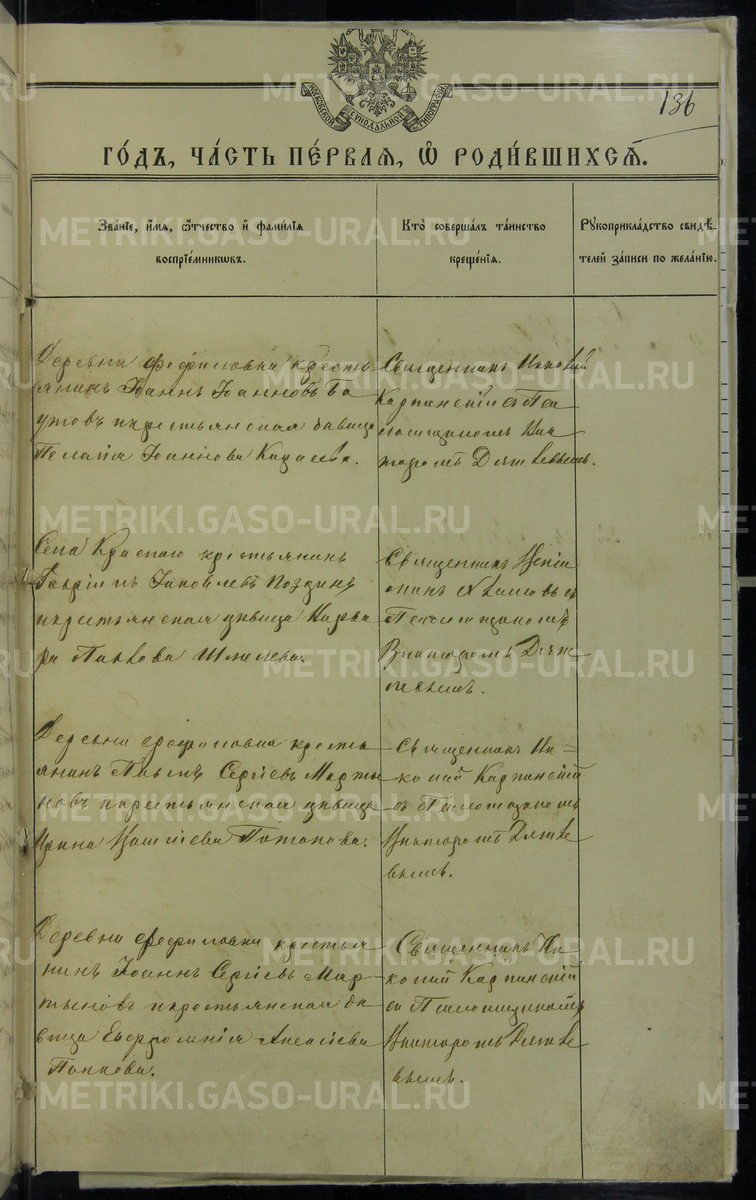 136
МОСКОВСКОЙ СУНОДАЛЬНОЙ ТИПОГРАФІИ
ГО́ДЪ, ЧА́СТЬ ПЕ́РВАЯ, Ѽ РОДИ́ВШИХСЯ.
Зва́ніе, и҆́мя, ѻ҆́тчество и҆ фами́лія
воспріе́мникѡвъ.
Кто̀ соверша́лъ та́инство
креще́нія.
Рꙋкоприкла́дство свидѣ́-
телей за́писи по жела́нію.
Деревни Фефиловки кресть
янинъ Іоаннъ Іоанновъ
и крестьянская дѣвица
Пелагія Іоаннова
Священникъ Николай
Карпинскій съ Пса
ломщикомъ Вик
торомъ
Села Краснаго крестьянинъ
Гавріилъ Іаковлевъ
и крестьянская дѣвица Варва
ра Павлова Шмелева.
Священникъ
съ
Псаломщикомъ
Викторомъ
Деревни Фефиловки кресть
янинъ Павелъ Сергіевъ Марты
новъ и крестьянская дѣвица
Ирина Васильева Потапова.
Священникъ Ни-
колай Карпинскій
съ Псаломщикомъ
Викторомъ
Деревни Фефиловки крестья
нинъ Іоаннъ Сергіевъ Мар-
тыновъ и крестьянская дѣ
вица Евфросинія Алексіева
Попкова.
Священникъ Ни-
колай Карпинскій
съ Псаломщикомъ
Викторомъ
METRIKI.GASO-URAL.RU